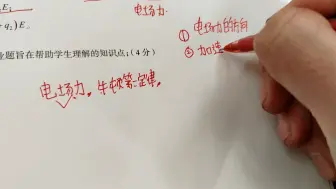 电场力
E₁
q₂)E
业题旨在帮助学生理解的知识点:(4分)
电场力,牛顿第二定律,
① 电场力的方向
② 加速